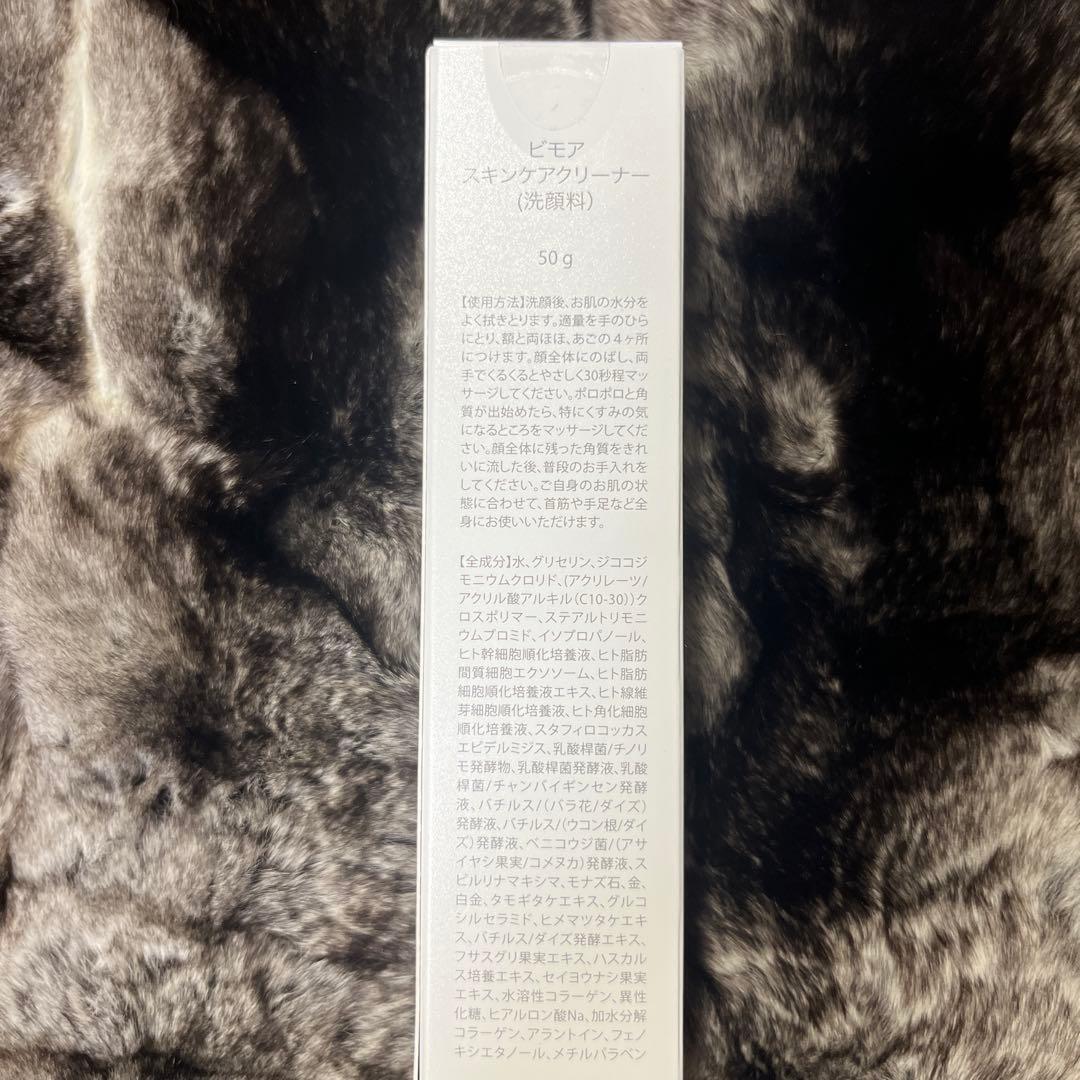 ビモア
スキンケアクリーナー
(洗顔料)
50 g
【使用方法】洗顔後、お肌の水分を
よく拭きとります。適量を手のひら
にとり、額と両ほほ、あごの4ヶ所
につけます。顔全体にのばし、両
手でくるくるとやさしく30秒程マッ
サージしてください。ポロポロと角
質が出始めたら、特にくすみの気
になるところをマッサージしてくだ
さい。顔全体に残った角質をきれ
いに流した後、普段のお手入れを
してください。ご自身のお肌の状
態に合わせて、首筋や手足など全
身にお使いいただけます。
【全成分】水、グリセリン、ジココジ
モニウムクロリド、(アクリレーツ/
アクリル酸アルキル(C10-30))ク
ロスポリマー、ステアルトリモニ
ウムブロミド、イソプロパノール、
ヒト幹細胞順化培養液、ヒト脂肪
間質細胞エクソソーム、ヒト脂肪
細胞順化培養液エキス、ヒト線維
芽細胞順化培養液、ヒト角化細胞
順化培養液、スタフィロコッカス
エピデルミジス、乳酸桿菌/チノリ
モ発酵物、乳酸桿菌発酵液、乳酸
桿菌/チャンバイギンセン発酵
液、バチルス/(バラ花/ダイズ)
発酵液、バチルス/(ウコン根/ダイ
ズ)発酵液、ベニコウジ菌/(アサ
イヤシ果実/コメヌカ)発酵液、ス
ピルリナマキシマ、モナズ石、金、
白金、タモギタケエキス、グルコ
シルセラミド、ヒメマツタケエキ
ス、バチルス/ダイズ発酵エキス、
フサスグリ果実エキス、ハスカル
ス培養エキス、セイヨウナシ果実
エキス、水溶性コラーゲン、異性
化糖、ヒアルロン酸Na、加水分解
コラーゲン、アラントイン、フェノ
キシエタノール、メチルパラベン